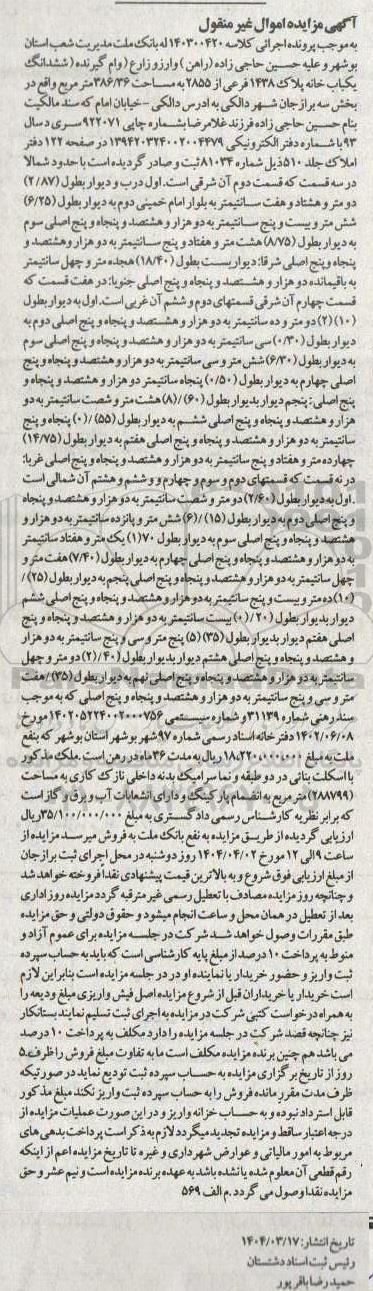 آگهی مزایده اموال غیر منقول
به موجب پرونده اجرائی کلاسه ۱۴۰۳۰۰۴۲۰ له بانک ملت مدیریت شعب استان
بوشهر و علیه حسین حاجی زاده (راهن) وارزو زارع (وام گیرنده) ششدانگ
یکباب خانه پلاک ۱۴۳۸ فرعی از ۲۸۵۵ به مساحت ۳۸۶/۳۶ متر مربع واقع در
بخش سه برازجان شهر دالکی به ادرس دالکی - خیابان امام که سند مالکیت
بنام حسین حاجی زاده فرزند غلامرضا بشماره چاپی ۹۲۲۰۷۱ سری د سال
۹۳ با شماره دفتر الکترونیکی ۱۳۹۴۲۰۳۲۴۰۰۲۰۰۴۴۷۹ در صفحه ۱۲۲ دفتر
املاک جلد ۵۱۰ ذیل شماره ۸۱۰۳۴ ثبت و صادر گردیده است با حدود شمالا
در سه قسمت که قسمت دوم آن شرقی است. اول درب و دیوار بطول (۲/۸۷)
دو متر و هشتاد و هفت سانتیمتر به بلوار امام خمینی دوم به دیوار بطول (۶/۲۵)
شش متر و بیست و پنج سانتیمتر به دو هزار و هشتصد و پنجاه و پنج اصلی سوم
به دیوار بطول (۸/۷۵) هشت متر و هفتاد و پنج سانتیمتر به دو هزار و هشتصد و
پنجاه و پنج اصلی شرقا: دیواریست بطول (۱۸/۴۰) هجده متر و چهل سانتیمتر
به باقیمانده دو هزار و هشتصد و پنجاه و پنج اصلی جنوبا: در هفت قسمت که
قسمت چهارم آن شرقی قسمتهای دوم و ششم آن غربی است. اول به دیوار بطول
(۱۰) (۲) دو متر و ده سانتیمتر به دو هزار و هشتصد و پنجاه و پنج اصلی دوم به
دیوار بطول (۰/۳۰) سی سانتیمتر به دو هزار و هشتصد و پنجاه و پنج اصلی سوم
به دیوار بطول (۶/۳۰) شش متر و سی سانتیمتر به دو هزار و هشتصد و پنجاه و پنج
اصلی چهارم به دیوار بطول (۰/۵۰) پنجاه سانتیمتر دو هزار و هشتصد و پنجاه و
پنج اصلی: پنجم دیوار بدیوار بطول (۶۰) /(۸) هشت متر و شصت سانتیمتر به دو
هزار و هشتصد و پنجاه و پنج اصلی ششم به دیوار بطول (۵۵) /(۰) پنجاه و پنج
سانتیمتر به دو هزار و هشتصد و پنجاه و پنج اصلی هفتم به دیوار بطول (۱۴/۷۵)
چهارده متر و هفتاد و پنج سانتیمتر به دو هزار و هشتصد و پنجاه و پنج اصلی غربا:
در نه قسمت که قسمتهای دوم و سوم و چهارم و و ششم و هشتم آن شمالی است
. اول به دیوار بطول (۲/۶۰) دو متر و شصت سانتیمتر به دو هزار و هشتصد و پنجاه
و پنج اصلی دوم به دیوار بطول (۱۵) /(۶) شش متر و پانزده سانتیمتر به دو هزار و
هشتصد و پنجاه و پنج اصلی سوم به دیوار بطول ۷۰(۱) یک متر و هفتاد سانتیمتر
به دو هزار و هشتصد و پنجاه و پنج اصلی چهارم به دیوار بطول (۷/۴۰) هفت متر و
چهل سانتیمتر به دو هزار و هشتصد و پنجاه و پنج اصلی پنجم به دیوار بطول (۲۵) /
(۱۰) ده متر و بیست و پنج سانتیمتر به دو هزار و هشتصد و پنجاه و پنج اصلی ششم
دیوار بدیوار بطول (۲۰) /(۰) بیست سانتیمتر به دو هزار و هشتصد و پنجاه و پنج
اصلی هفتم دیوار بدیوار بطول (۳۵) (۵) پنج متر و سی و پنج سانتیمتر به دو هزار
و هشتصد و پنجاه و پنج اصلی هشتم دیوار بدیوار بطول (۴۰) /(۲) دو متر و چهل
سانتیمتر به دو هزار و هشتصد و پنجاه و پنج اصلی نهم به دیوار بطول (۳۵) /هفت
متر و سی و پنج سانتیمتر به دو هزار و هشتصد و پنجاه و پنج اصلی که به موجب
سند رهنی شماره ۳۱۱۳۹ و شماره سیستمی ۱۴۰۲۰۵۲۲۴۰۰۲۰۰۰۷۵۶ مورخ
۱۴۰۲/۰۶/۰۸ دفتر خانه اسناد رسمی شماره ۹۷ شهر بوشهر استان بوشهر که بنفع
ملت به مبلغ ۱۸،۲۲۰،۰۰۰،۰۰۰ ریال به مدت ۳۶ ماه در رهن است. ملک مذکور
با اسکلت بتائی در دو طبقه و نما سرامیک بدنه داخلی نازک کاری به مساحت
(۲۸۸۷۹۹) متر مربع به انضمام پارکینگ و دارای انشعابات آب و برق و گاز است
که برابر نظریه کارشناس رسمی دادگستری به مبلغ ۳۵/۱۰۰/۰۰۰/۰۰۰ ریال
ارزیابی گردیده از طریق مزایده به نفع بانک ملت به فروش میرسد مزایده از
ساعت ۹ الی ۱۲ مورخ ۱۴۰۴/۰۴/۰۲ روز دوشنبه در محل اجرای ثبت برازجان
از مبلغ ارزیابی فوق شروع و به بالاترین قیمت پیشنهادی نقدا فروخته خواهد شد
و چنانچه روز مزایده مصادف با تعطیل رسمی غیر مترقبه گردد مزایده روز اداری
بعد از تعطیل در همان محل و ساعت انجام میشود و حقوق دولتی و حق مزایده
طبق مقررات وصول خواهد شد شرکت در جلسه مزایده برای عموم آزاد و
منوط به پرداخت ۱۰ درصد از مبلغ پایه کارشناسی است که باید به حساب سپرده
ثبت واریز و حضور خریدار یا نماینده او در در جلسه مزایده است بنابراین لازم
است خریدار یا خریداران قبل از شروع مزایده اصل فیش واریزی مبلغ ودیعه را
به همراه درخواست کتبی شرکت در مزایده به اجرای ثبت تسلیم نمایند بستانکار
نیز چنانچه قصد شرکت در جلسه مزایده را دارد مکلف به پرداخت ۱۰ درصد
می باشد هم چنین برنده مزایده مکلف است ما به تفاوت مبلغ فروش را ظرف ۵
روز از تاریخ برگزاری مزایده به حساب سپرده ثبت تودیع نماید در صورتیکه
ظرف مدت مقرر مانده فروش را به حساب سپرده ثبت واریز نکند مبلغ مذکور
قابل استرداد نبوده و به حساب خزانه واریز و در این صورت عملیات مزایده از
درجه اعتبار ساقط و مزایده تجدید میگردد لازم به ذکر است پرداخت بدهی های
مربوط به امور مالیاتی و عوارض شهرداری و غیره تا تاریخ مزایده اعم از اینکه
رقم قطعی آن معلوم شده یا نشده باشد به عهده برنده مزایده است و نیم عشر و حق
مزایده نقدا وصول می گردد. م الف ۵۶۹
تاریخ انتشار: ۱۴۰۴/۰۳/۱۷
رئیس ثبت اسناد دشتستان
حمید رضا باقر پور